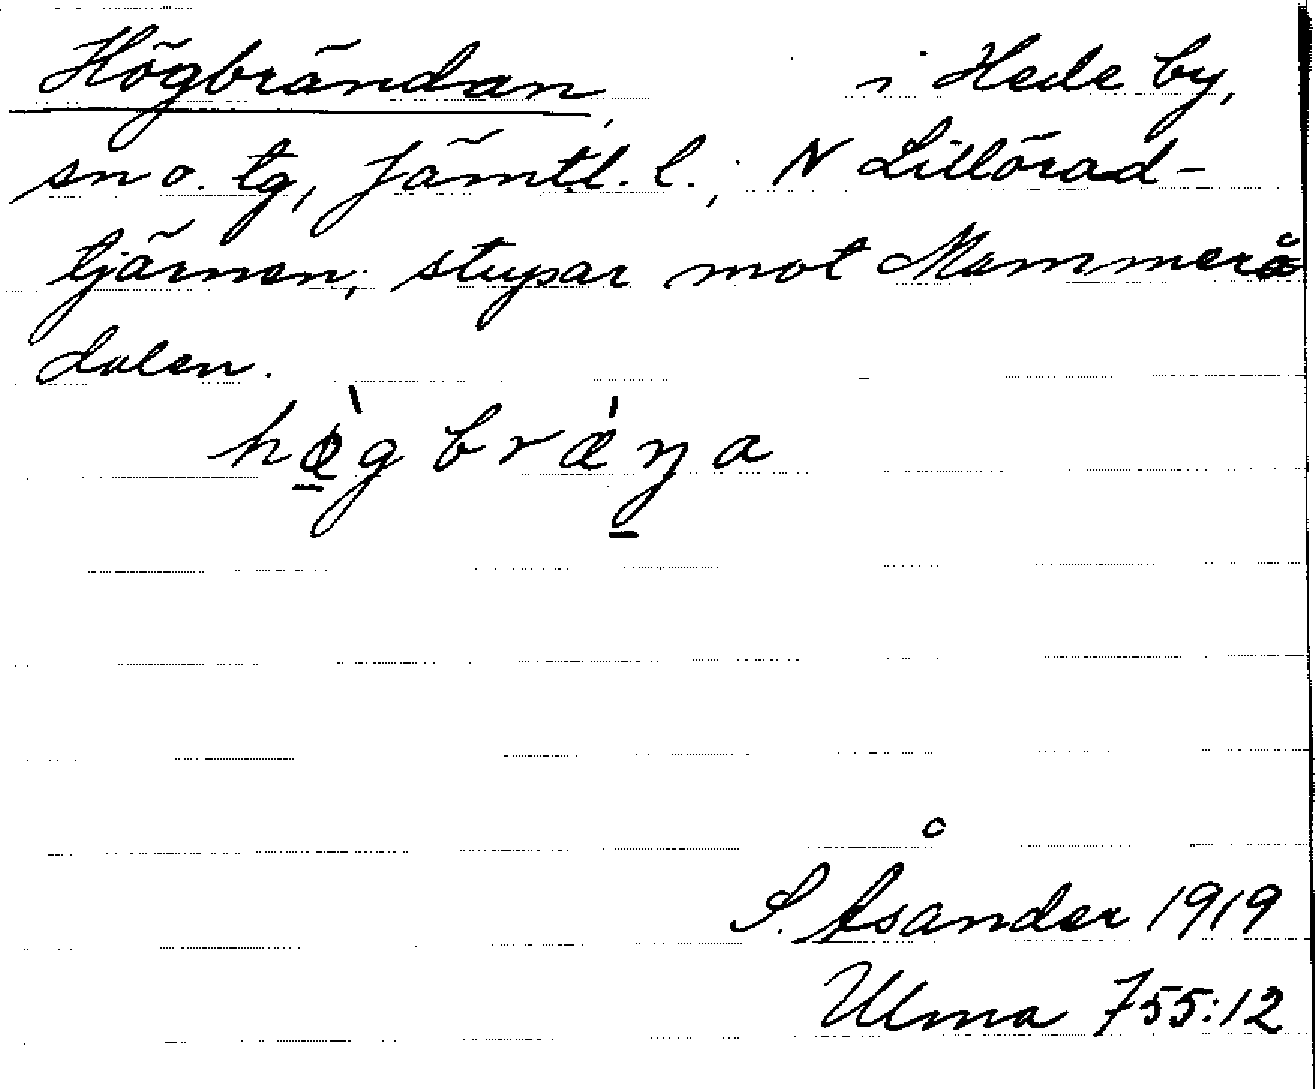 Högbrändan, i Hede by,
sn o. tg, Jämtl. l.; N Lillörad-
tjärnen; stupar mot Mammerå
dalen.
hø̱̀gbrǽŋ̱a
S. Åsander 1919
Ulma 755:12